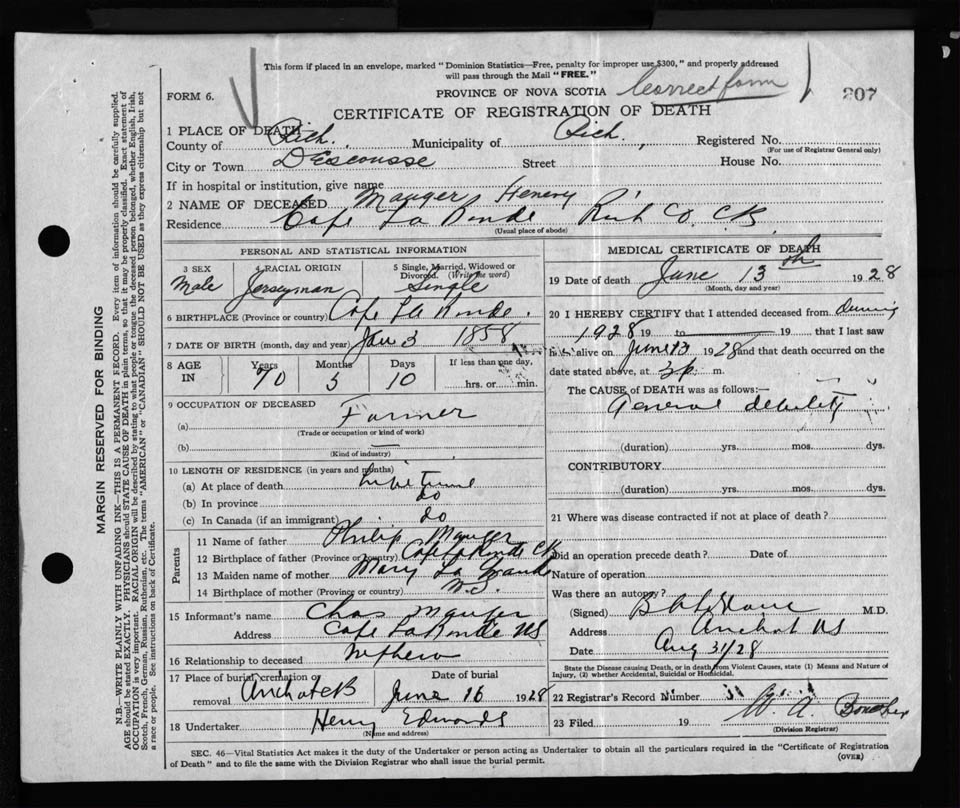 This form if placed in an envelope, marked "Dominion Statistics—Free, penalty for improper use $300," and properly addressed
will pass through the Mail "FREE."
FORM 6.
PROVINCE OF NOVA SCOTIA
Correct form
207
CERTIFICATE OF REGISTRATION OF DEATH
1 PLACE OF DEATH
County of Rich. Municipality of Rich. Registered No.
(For use of Registrar General only)
City or Town DEscousse Street House No.
If in hospital or institution, give name
2 NAME OF DECEASED Mauger Henery
Residence Cape La Ronde Rich Co. CB
(Usual place of abode)
PERSONAL AND STATISTICAL INFORMATION
3 SEX 4 RACIAL ORIGIN 5 Single, Married, Widowed or
Divorced. (Write the word)
Male Jerseyman Single
6 BIRTHPLACE (Province or country) Cape La Ronde.
7 DATE OF BIRTH (month, day and year) Jan 3 1858
8 AGE IN Years Months Days If less than one day,
70 5 10 hrs. or min.
9 OCCUPATION OF DECEASED
(a) Farmer
(Trade or occupation or kind of work)
(b)
(Kind of industry)
10 LENGTH OF RESIDENCE (in years and months)
(a) At place of death Life time
(b) In province do
(c) In Canada (if an immigrant) do
Parents
11 Name of father Philip Mauger
12 Birthplace of father (Province or country) Cape La Ronde CB
13 Maiden name of mother Mary La
14 Birthplace of mother (Province or country) N.S.
15 Informant's name Chas Mauger
Address Cape La Ronde NS
16 Relationship to deceased Nephew
17 Place of burial, cremation or Date of burial
removal Arichat CB June 16 1928
18 Undertaker Henry Edwards
(Name and address)
MEDICAL CERTIFICATE OF DEATH
19 Date of death June 13th 1928
(Month, day and year)
20 I HEREBY CERTIFY that I attended deceased from during
1928 19 to 19 that I last saw
h alive on June 13 1928 and that death occurred on the
date stated above, at 3 p. m.
The CAUSE of DEATH was as follows:—
General debility
(duration) yrs. mos. dys.
CONTRIBUTORY
(duration) yrs. mos. dys.
21 Where was disease contracted if not at place of death?
Did an operation precede death? Date of
Nature of operation
Was there an autopsy?
(Signed) M.D.
Address Arichat NS
Date Aug 31/28
State the Disease causing Death, or in death from Violent Causes, state (1) Means and Nature of
Injury, (2) whether Accidental, Suicidal or Homicidal.
22 Registrar's Record Number
23 Filed 19 W. A.
(Division Registrar)
SEC. 46—Vital Statistics Act makes it the duty of the Undertaker or person acting as Undertaker to obtain all the particulars required in the "Certificate of Registration
of Death" and to file the same with the Division Registrar who shall issue the burial permit.
(OVER)
MARGIN RESERVED FOR BINDING
N.B.—WRITE PLAINLY WITH UNFADING INK—THIS IS A PERMANENT RECORD. Every item of information should be carefully supplied.
AGE should be stated EXACTLY. PHYSICIANS should STATE CAUSE OF DEATH in plain terms, so that it may be properly classified. Exact statement of
OCCUPATION is very important. RACIAL ORIGIN will be described by stating to what people or tongue the deceased person belonged, whether English, Irish,
Scotch, French, German, Russian, Ruthenian, etc. The terms "AMERICAN" or "CANADIAN" SHOULD NOT BE USED as they express citizenship but not
a race or people. See instructions on back of Certificate.